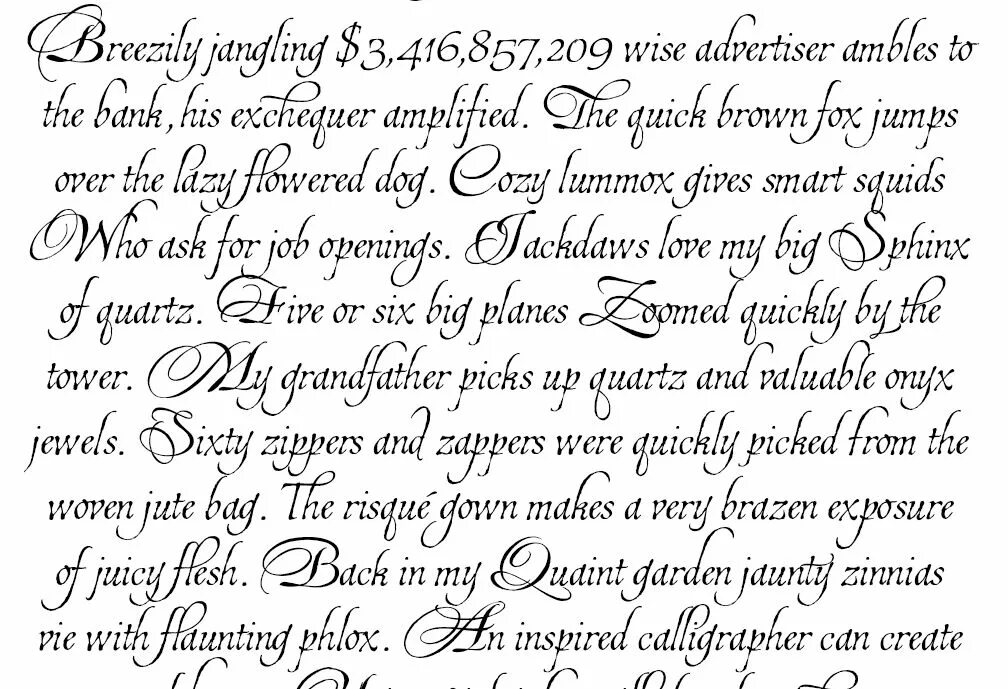 Breezily jangling $3,416,857,209 wise advertiser ambles to
the bank, his exchequer amplified. The quick brown fox jumps
over the lazy flowered dog. Cozy lummox gives smart squids
Who ask for job openings. Jackdaws love my big Sphinx
of quartz. Five or six big planes Zoomed quickly by the
tower. My grandfather picks up quartz and valuable onyx
jewels. Sixty zippers and zappers were quickly picked from the
woven jute bag. The risqué gown makes a very brazen exposure
of juicy flesh. Back in my Quaint garden jaunty zinnias
vie with flaunting phlox. An inspired calligrapher can create